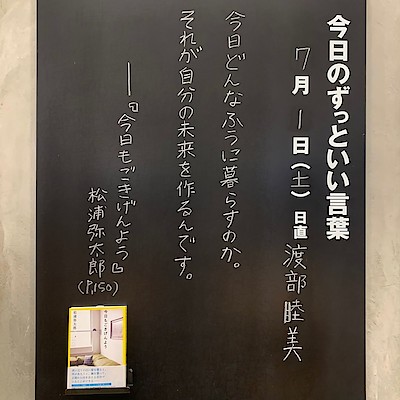 今日のずっといい言葉
7月1日(土) 日直 渡部睦美
今日どんなふうに暮らすのか。
それが自分の未来を作るんです。
―『今日もごきげんよう』
松浦弥太郎
(P.150)
今日もごきげんよう
松浦弥太郎